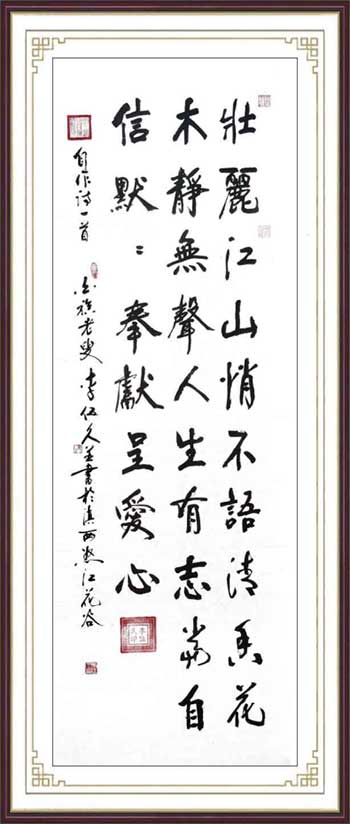 壯麗江山悄不語清香花
木靜無聲人生有志當自
信默〻奉獻呈愛心
自作诗一首 白族老叟李伍久並書於滇西怒江花谷